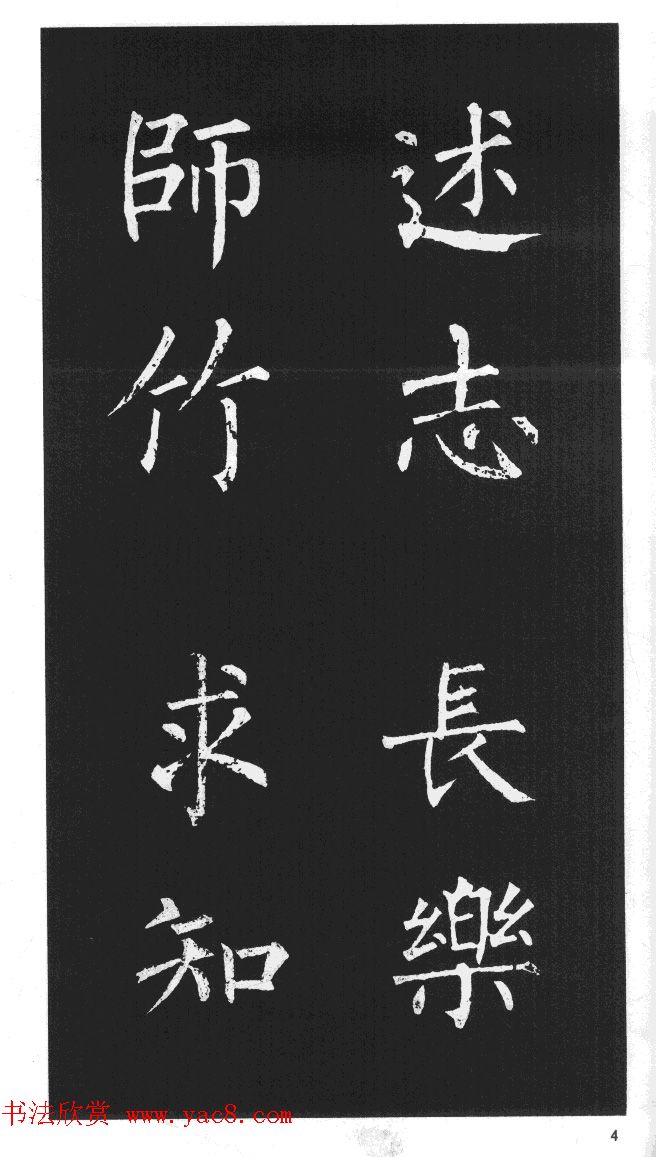 述志
師竹
長樂
求知
书法欣赏 www.yac8.com
4